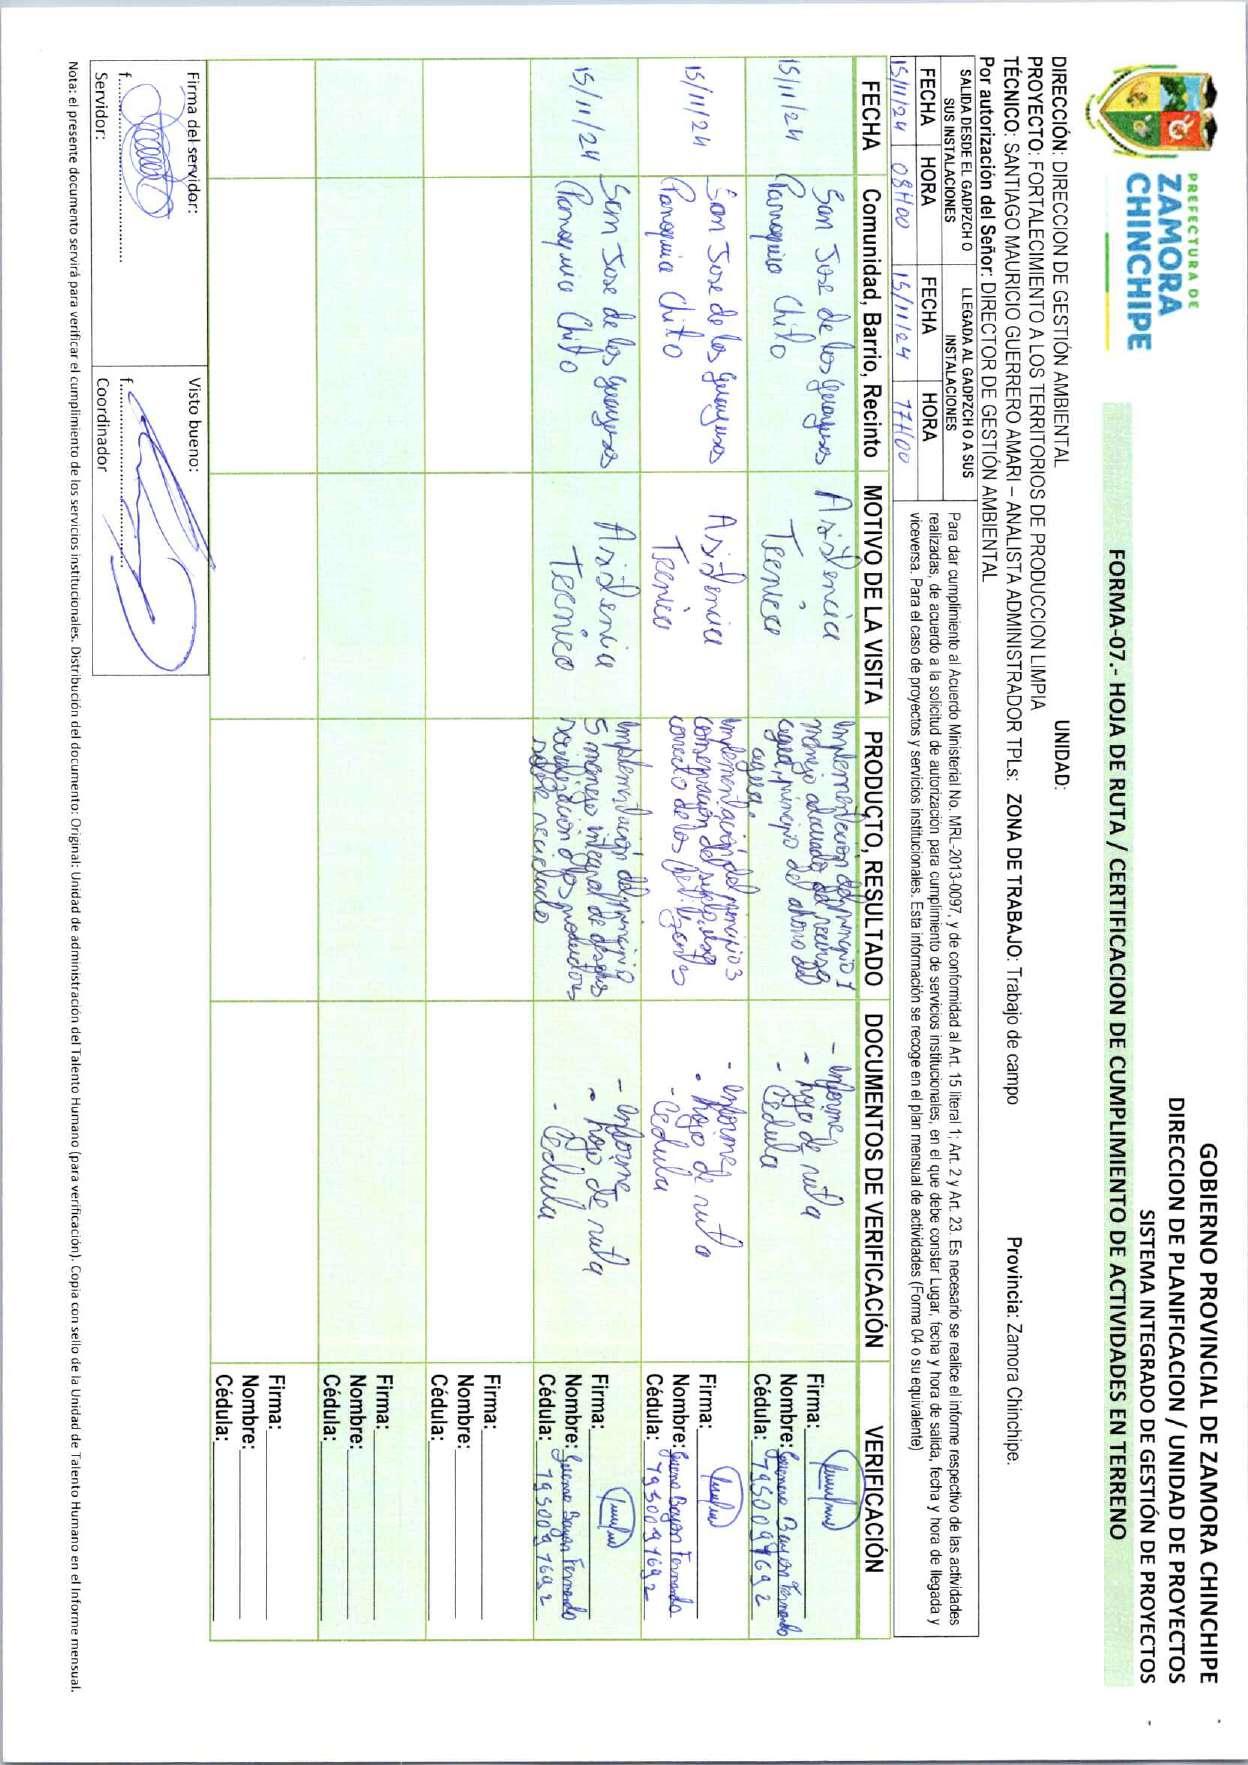 PREFECTURA DE
ZAMORA
CHINCHIPE
GOBIERNO PROVINCIAL DE ZAMORA CHINCHIPE
DIRECCION DE PLANIFICACION / UNIDAD DE PROYECTOS
SISTEMA INTEGRADO DE GESTIÓN DE PROYECTOS
FORMA-07.- HOJA DE RUTA / CERTIFICACION DE CUMPLIMIENTO DE ACTIVIDADES EN TERRENO
DIRECCIÓN: DIRECCION DE GESTIÓN AMBIENTAL UNIDAD:
PROYECTO: FORTALECIMIENTO A LOS TERRITORIOS DE PRODUCCION LIMPIA
TÉCNICO: SANTIAGO MAURICIO GUERRERO AMARI – ANALISTA ADMINISTRADOR TPLs: ZONA DE TRABAJO: Trabajo de campo Provincia: Zamora Chinchipe.
Por autorización del Señor: DIRECTOR DE GESTIÓN AMBIENTAL
SALIDA DESDE EL GADPZCH O SUS INSTALACIONES
LLEGADA AL GADPZCH O A SUS INSTALACIONES
FECHA HORA FECHA HORA
15/11/24 08H00 15/11/24 17H00
Para dar cumplimiento al Acuerdo Ministerial No. MRL-2013-0097, y de conformidad al Art. 15 literal 1; Art. 2 y Art. 23. Es necesario se realice el informe respectivo de las actividades
realizadas, de acuerdo a la solicitud de autorización para cumplimiento de servicios institucionales, en el que debe constar Lugar, fecha y hora de salida, fecha y hora de llegada y
viceversa. Para el caso de proyectos y servicios institucionales. Esta información se recoge en el plan mensual de actividades (Forma 04 o su equivalente)
FECHA Comunidad, Barrio, Recinto MOTIVO DE LA VISITA PRODUCTO, RESULTADO DOCUMENTOS DE VERIFICACIÓN VERIFICACIÓN
15/11/24
San Jose de los guayusas
Parroquia Chito
Asistencia
Tecnica
Implementacion del principio 1
manejo adecuado del recurso
agua, principio del ahorro del
agua
- Informe
- hoja de ruta
- Cedula
Firma:
Nombre: Fernando
Cédula:
15/11/24
San Jose de los guayusas
Parroquia Chito
Asistencia
Tecnica
Implementación del principio 3
conservación del suelo, uso
correcto de los fertilizantes
- Informe
- hoja de ruta
- Cedula
Firma:
Nombre: Fernando
Cédula: 1950091692
15/11/24
San Jose de los guayusas
Parroquia Chito
Asistencia
Tecnica
Implementación del principio
5 manejo integral de desechos
socialización a los productores
sobre reciclado
- Informe
- hoja de ruta
- Cedula
Firma:
Nombre: Fernando
Cédula: 1950091692
Firma:
Nombre:
Cédula:
Firma:
Nombre:
Cédula:
Firma:
Nombre:
Cédula:
Firma del servidor:
f.
Servidor:
Visto bueno:
f.
Coordinador
Nota: el presente documento servirá para verificar el cumplimiento de los servicios institucionales. Distribución del documento: Original: Unidad de administración del Talento Humano (para verificación). Copia con sello de la Unidad de Talento Humano en el Informe mensual.